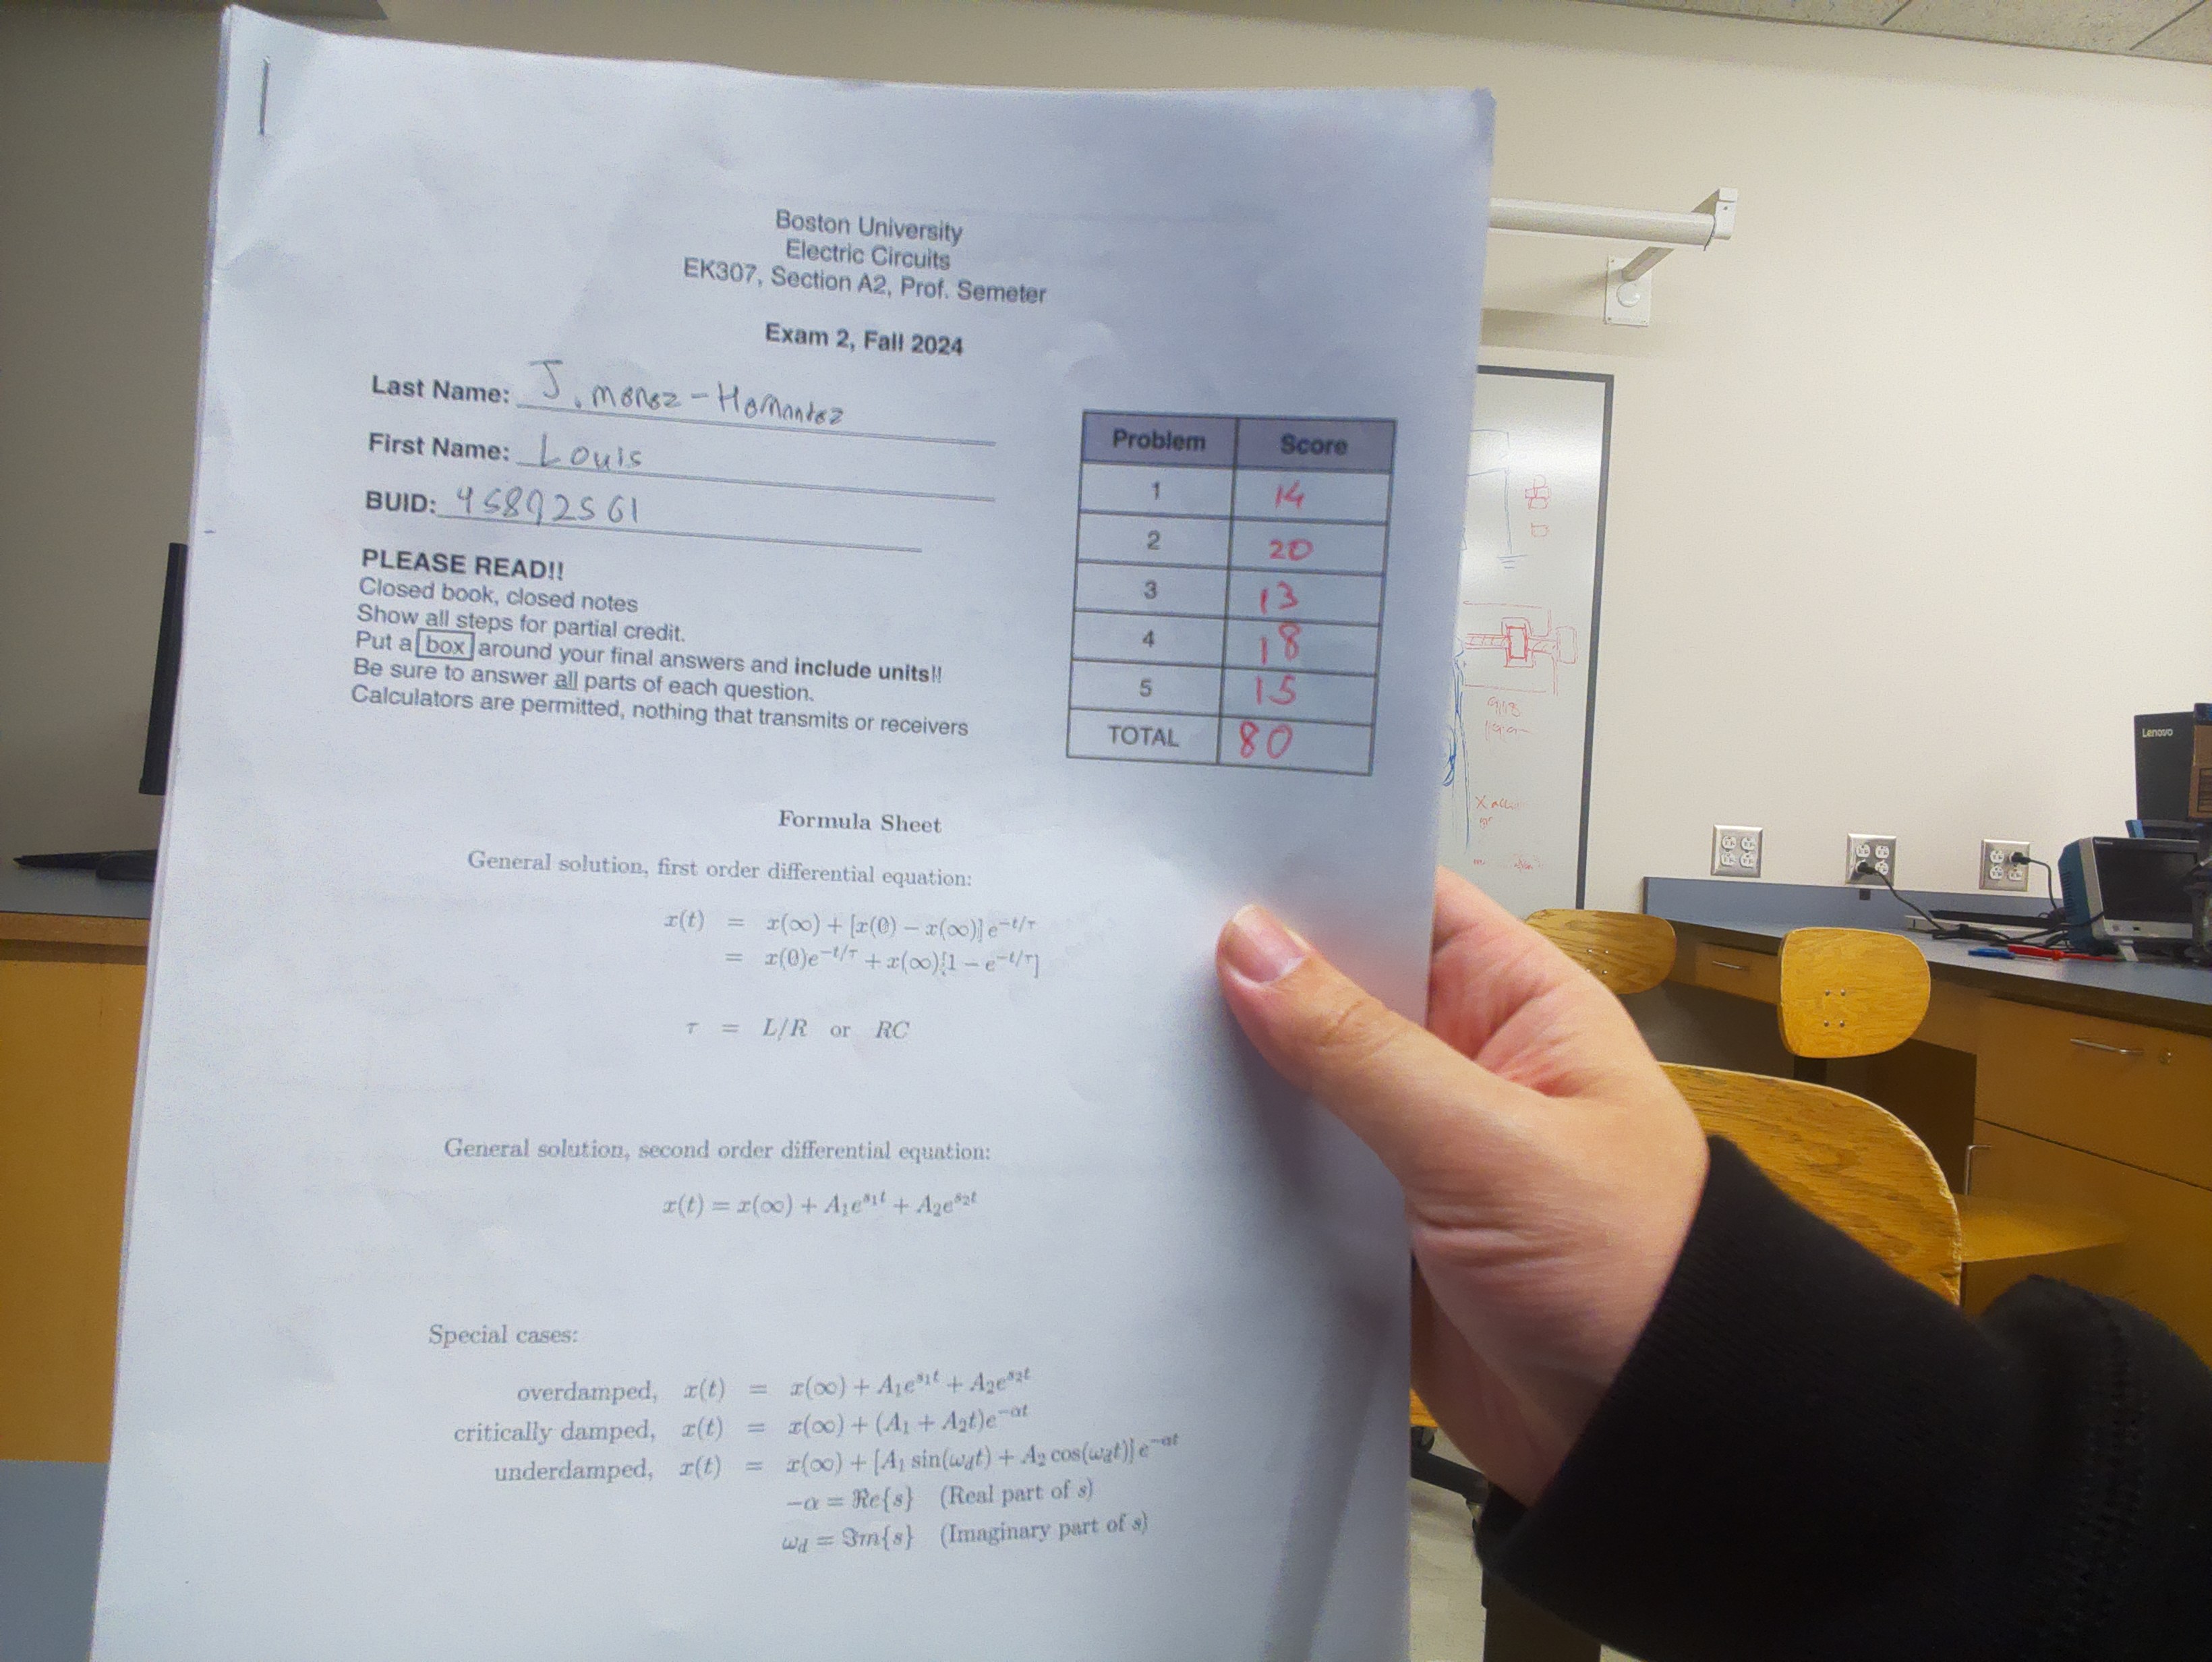 Boston University
Electric Circuits
EK307, Section A2, Prof. Semeter
Exam 2, Fall 2024
Last Name: Jimenez-Hernandez
First Name: Louis
BUID: 45892561
PLEASE READ!!
Closed book, closed notes
Show all steps for partial credit.
Put a box around your final answers and include units!!
Be sure to answer all parts of each question.
Calculators are permitted, nothing that transmits or receivers
Problem Score
1 14
2 20
3 13
4 18
5 15
TOTAL 80
Formula Sheet
General solution, first order differential equation:
x(t) = x(∞) + [x(0) − x(∞)] e^{−t/τ}
= x(0)e^{−t/τ} + x(∞)[1 − e^{−t/τ}]
τ = L/R or RC
General solution, second order differential equation:
x(t) = x(∞) + A₁e^{s₁t} + A₂e^{s₂t}
Special cases:
overdamped, x(t) = x(∞) + A₁e^{s₁t} + A₂e^{s₂t}
critically damped, x(t) = x(∞) + (A₁ + A₂t)e^{−αt}
underdamped, x(t) = x(∞) + [A₁ sin(ω_d t) + A₂ cos(ω_d t)] e^{−αt}
−α = ℜe{s} (Real part of s)
ω_d = ℑm{s} (Imaginary part of s)
Lenovo